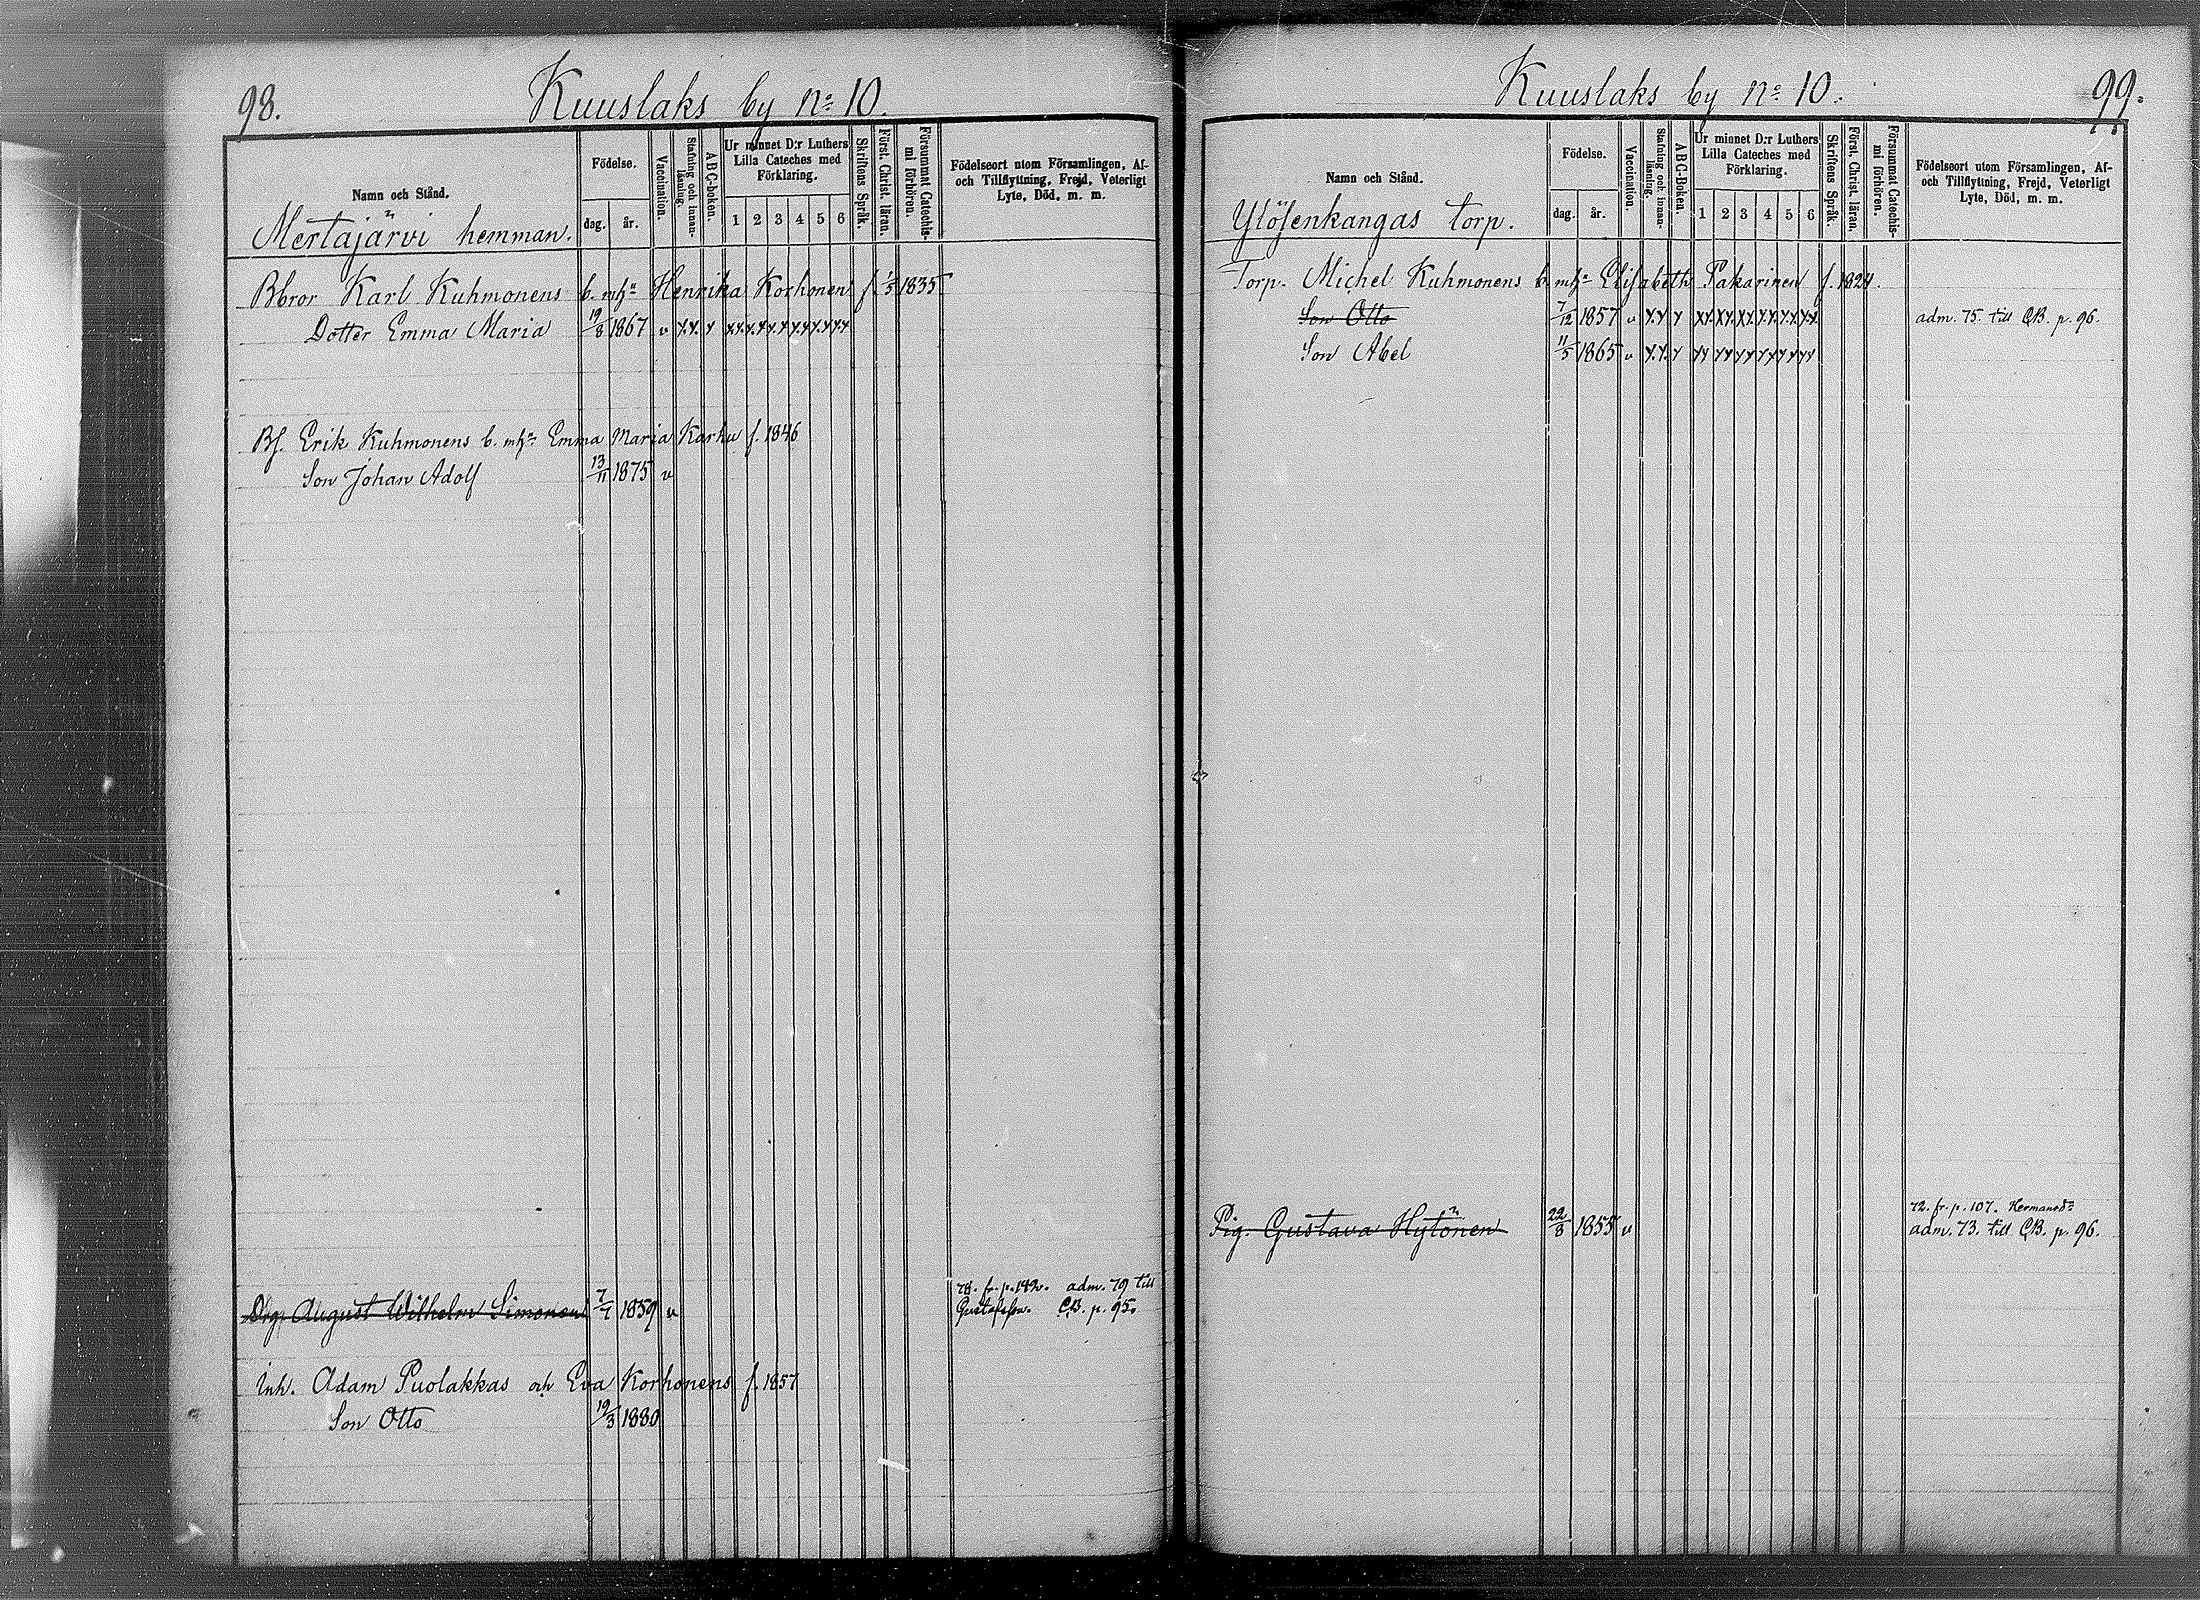 98.
Kuuslaks by No 10.
Namn och Stånd.
Födelse.
dag.
år.
Vaccination.
Stafning och innan-läsning.
ABC-boken.
Ur minnet D:r Luthers
Lilla Cateches med
Förklaring.
1 2 3 4 5 6
Skriftens Språk.
Först. Christ. läran.
Försummat Catechis-
mi förhören.
Födelseort utom Församlingen, Af-
och Tillflyttning, Frejd, Veterligt
Lyte, Död, m. m.
Mertajärvi hemman.
Bbror Karl Kuhmonens b. mhn Henrika Korhonen f. 1/5 1835
Dotter Emma Maria 19/8 1867 v
Bf. Erik Kuhmonens b. mhn Emma Maria Karhu f. 1846
Son Johan Adolf 13/11 1875 v
Drg. August Wilhelm Simonen 7/7 1859 v
78. fr. p. 182. adm. 79 till
CB. p. 95.
Inh. Adam Puolakkas och Eva Korhonens f. 1857
Son Otto 19/3 1880
99.
Kuuslaks by No 10.
Namn och Stånd.
Födelse.
dag.
år.
Vaccination.
Stafning och innan-läsning.
ABC-boken.
Ur minnet D:r Luthers
Lilla Cateches med
Förklaring.
1 2 3 4 5 6
Skriftens Språk.
Först. Christ. läran.
Försummat Catechis-
mi förhören.
Födelseort utom Församlingen, Af-
och Tillflyttning, Frejd, Veterligt
Lyte, Död, m. m.
Ylösenkangas torp.
Torp. Michel Kuhmonens b. mhn Elisabeth Pakarinen f. 1824.
Son Otto 7/12 1857 v adm. 75. till CB. p. 96.
Son Abel 11/5 1865 v
72. fr. p. 107.
Pig. Gustava Hytönen 22/8 1855 v adm. 73. till CB. p. 96.